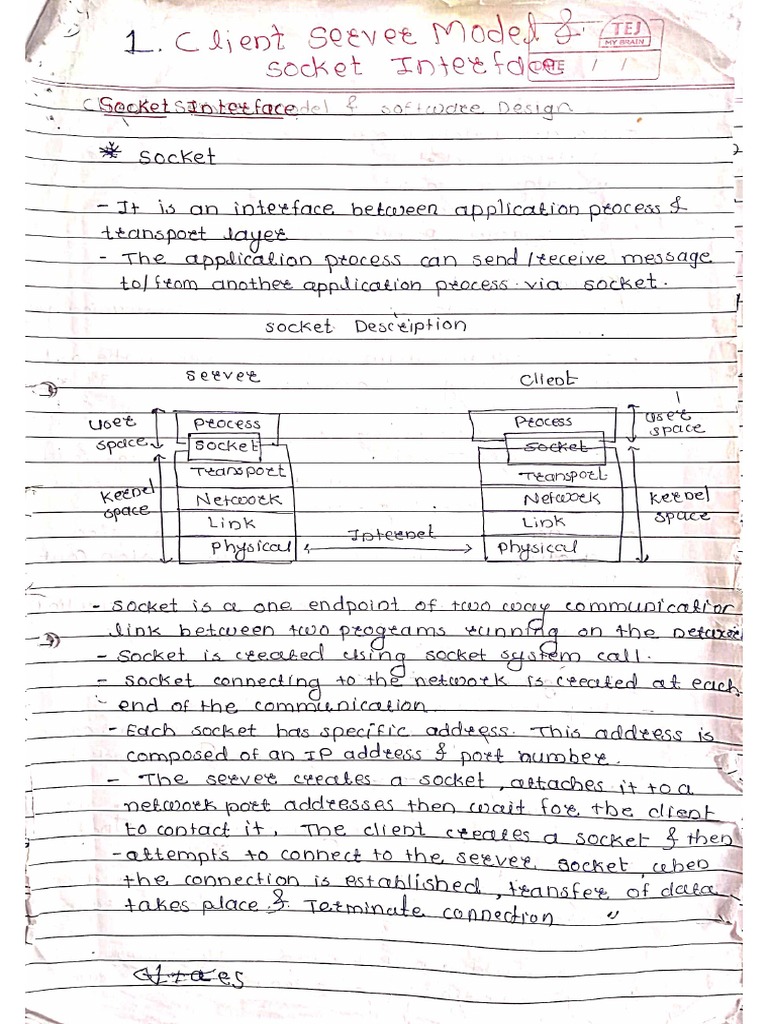 1. Client Server Model &
Socket Interface
TEJ
MY BRAIN
DATE / /
Socket Interface & Software Design
* Socket
- It is an interface between application process &
transport layer
- The application process can send/receive message
to/from another application process via socket.
Socket Description
Server Client
User space Process Process User space
Socket Socket
Kernel space Transport Transport Kernel space
Network Network
Link Link
Physical Internet Physical
- Socket is a one endpoint of two way communication
link between two programs running on the
- Socket is created using socket system call.
- Socket connecting to the network is created at each
end of the communication
- Each socket has specific address. This address is
composed of an IP address & port number.
- The server creates a socket, attaches it to a
network port addresses then wait for the client
to contact it. The client creates a socket & then
- attempts to connect to the server socket, when
the connection is established, transfer of data
takes place & Terminate connection "